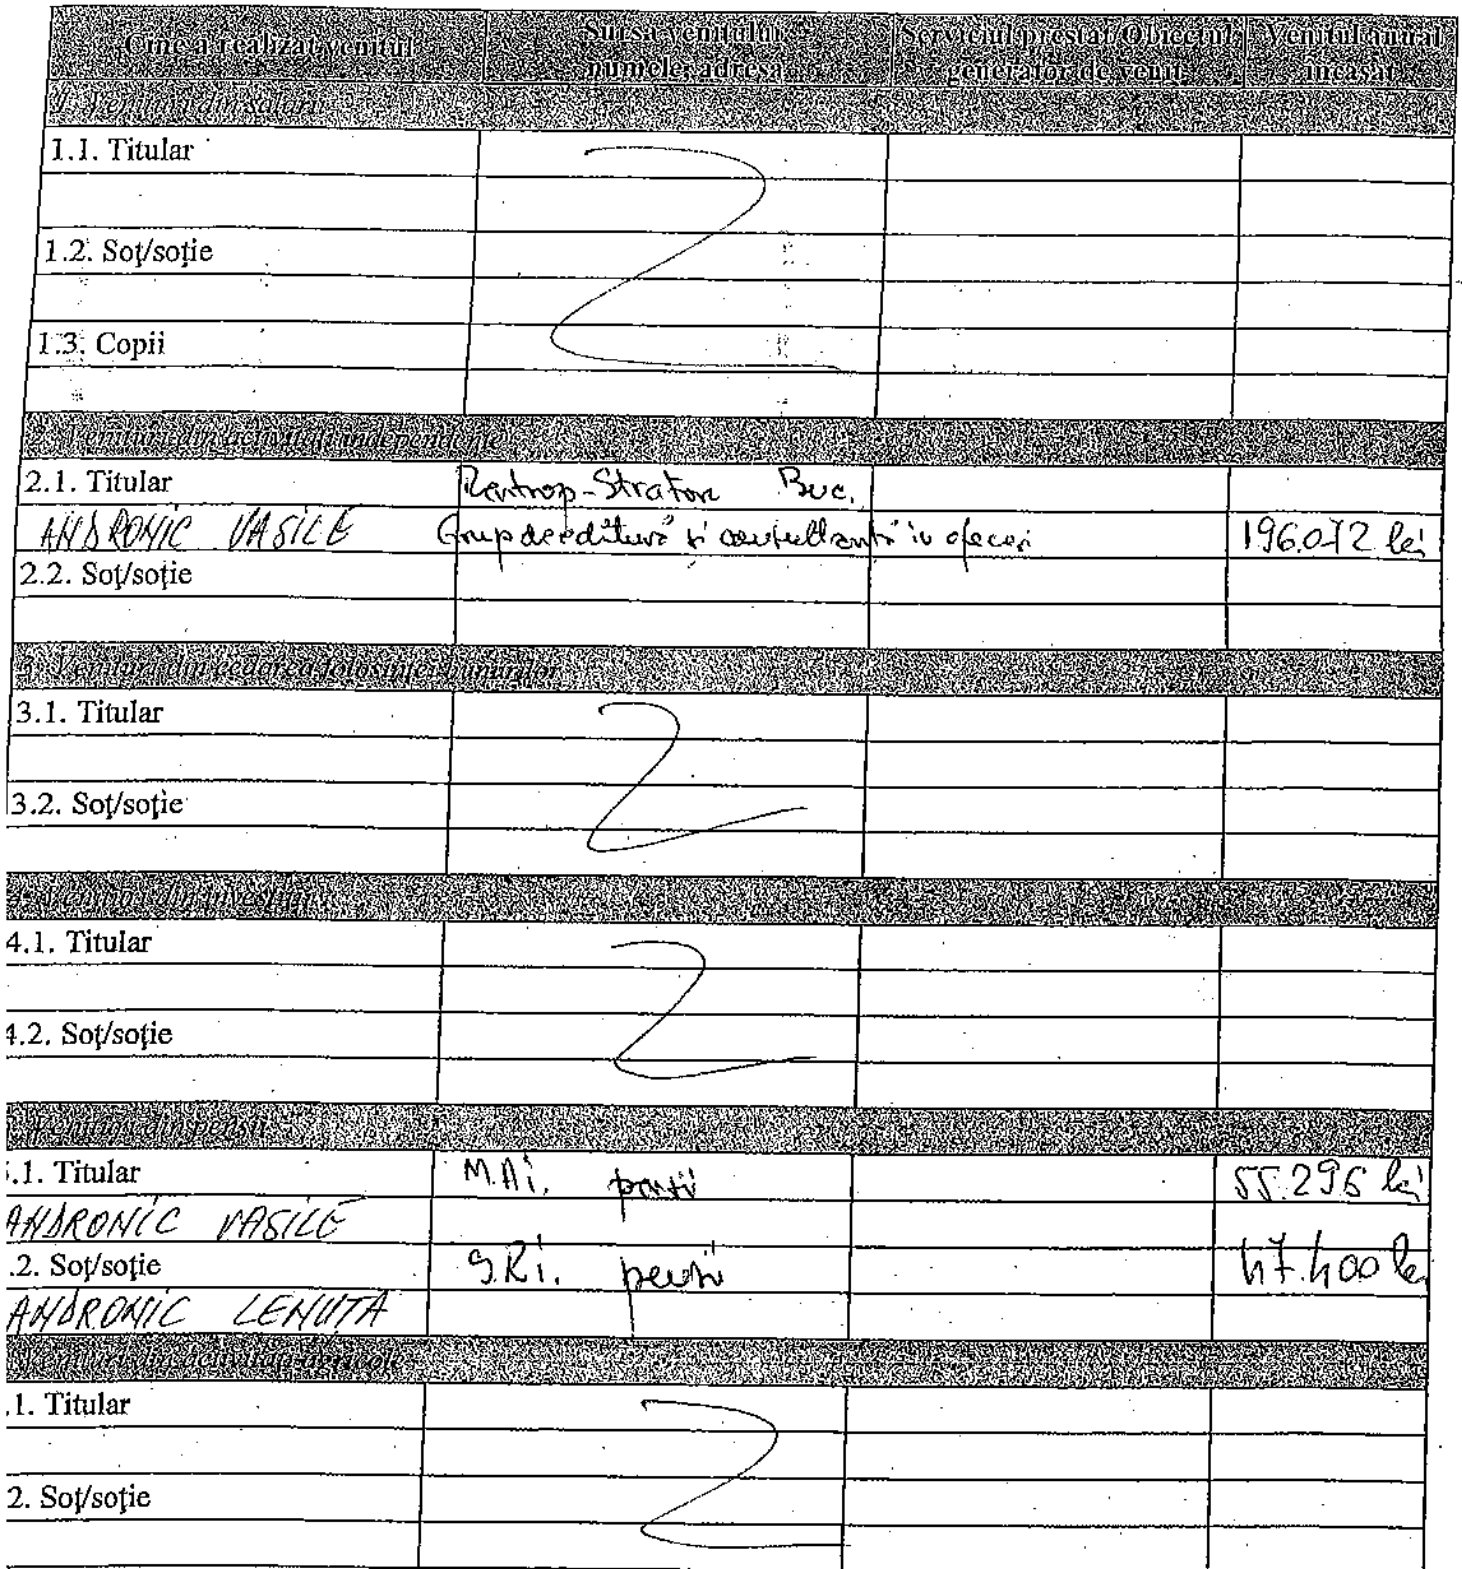 Cine a realizat venitul
Sursa venitului:
numele, adresa
Serviciul prestat/Obiectul
generator de venit
Venitul anual
încasat
1. Venituri din salarii
1.1. Titular
1.2. Soţ/soţie
1.3. Copii
2. Venituri din activităţi independente
2.1. Titular Rentrop-Straton Buc.
ANDRONIC VASILE Grup de editură și consultanță în afaceri 196.072 lei
2.2. Soţ/soţie
3. Venituri din cedarea folosinţei bunurilor
3.1. Titular
3.2. Soţ/soţie
4. Venituri din investiţii
4.1. Titular
4.2. Soţ/soţie
Venituri din pensii
.1. Titular M.A.i. 55.296 lei
ANDRONIC VASILE
.2. Soţ/soţie S.R.i. 47.400 lei
ANDRONIC LENUȚA
Venituri din activităţi agricole
.1. Titular
2. Soţ/soţie